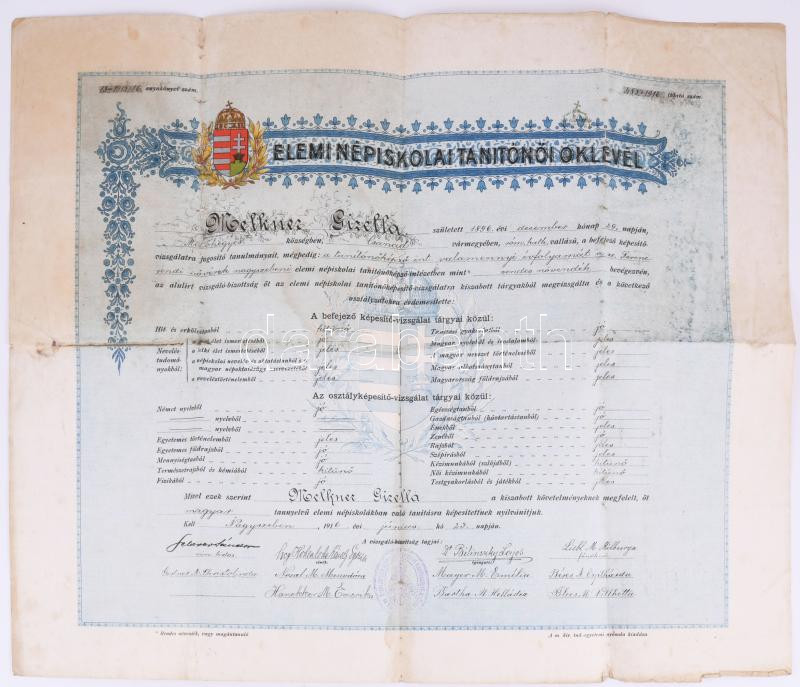 anyakönyvi szám.
törzskv. szám.
ELEMI NÉPISKOLAI TANÍTÓNŐI OKLEVÉL
Melkner Gizella született 1896. évi december hónap 29. napján,
Mezőhegyes községben, Csanád vármegyében, róm. kath. vallású, a befejező képesítő-
vizsgálatra jogosító tanulmányait, mégpedig: a tanítónőképző int. valamennyi évfolyamát az u. Ferenc-
rendi nővérek nagyszebeni elemi népiskolai tanítónőképző-intézetben mint* rendes növendék bevégezvén,
az alulírt vizsgáló-bizottság őt az elemi népiskolai tanítónőképesítő-vizsgálatra kiszabott tárgyakból megvizsgálta és a következő
osztályzatokra érdemesítette:
A befejező képesítő-vizsgálat tárgyai közül:
Hit és erkölcstanból kitűnő
Nevelés-
tudomá-
nyokból:
a testi élet ismertetéséből jó
a lelki élet ismertetéséből jeles
a népiskolai nevelés és oktatástanból s a
magyar népoktatásügy szervezetéből jeles
a neveléstörténelemből jeles
Tanítási gyakorlatból jó
Magyar nyelvből és irodalomból jeles
A magyar nemzet történelméből jeles
Magyar alkotmánytanból jeles
Magyarország földrajzából jeles
Az osztályképesítő-vizsgálat tárgyai közül:
Német nyelvből jó
nyelvből
nyelvből
Egyetemes történelemből jeles
Egyetemes földrajzból jó
Mennyiségtanból jó
Természetrajzból és kémiából kitűnő
Fizikából jó
Egészségtanból jó
Gazdaságtanból (háztartástanból) jó
Énekből jeles
Zenéből jó
Rajzból jeles
Szépírásból jeles
Kézimunkából (szlöjdből) kitűnő
Női kézimunkából kitűnő
Testgyakorlásból és játékból jeles
Mivel ezek szerint Melkner Gizella a kiszabott követelményeknek megfelelt, őt
magyar tannyelvű elemi népiskolákban való tanításra képesítettnek nyilvánítjuk.
Kelt Nagyszeben, 1916 évi június hó 23. napján.
A vizsgáló-bizottság tagjai:
Dr. Bilinszky Lajos
Mayer M. Emilia
darabanth.com
* Rendes növendék, vagy magántanuló
A m. kir. tud.-egyetemi nyomda kiadása